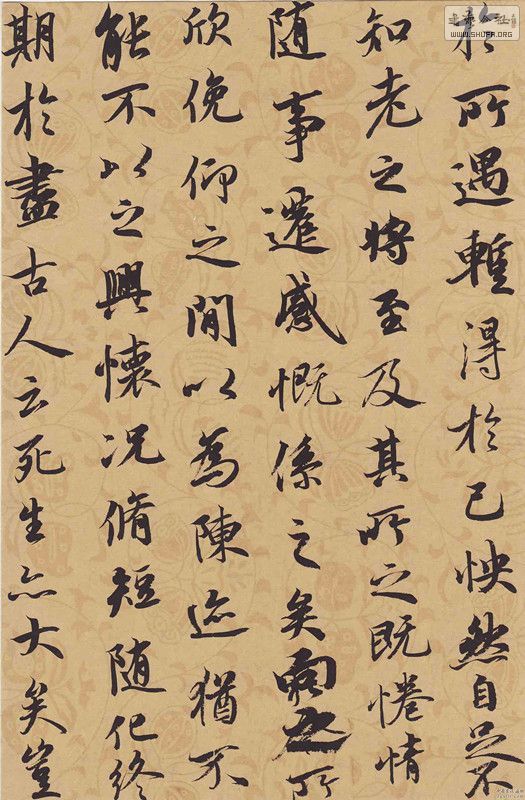 於所遇暫得於己怏然自足不
知老之將至及其所之既惓情
隨事遷感慨係之矣向之所
欣俛仰之閒以為陳迹猶不
能不以之興懷況脩短隨化終
期於盡古人云死生亦大矣豈
WWW.SHUFA.ORG